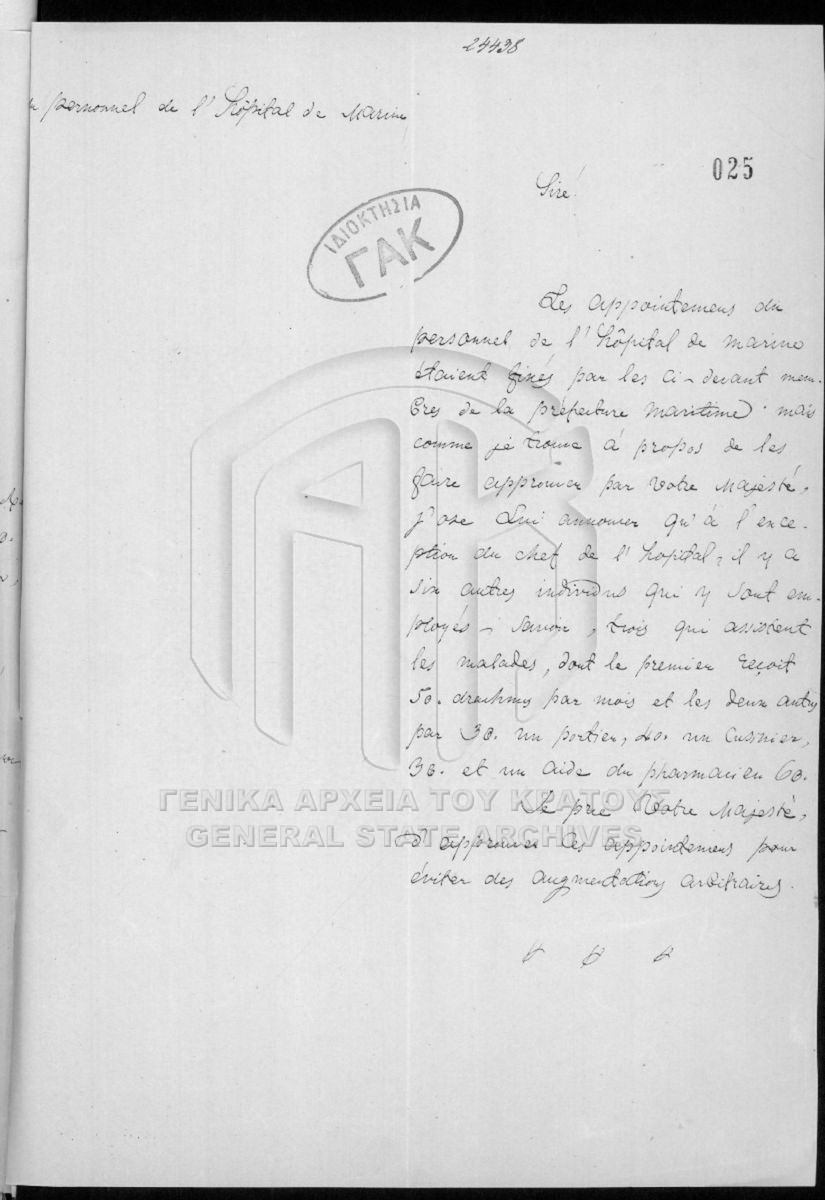 24438
personnel de l'Hôpital de Marine
025
Sire!
ΙΔΙΟΚΤΗΣΙΑ
ΓΑΚ
Les appointemens du
personnel de l'hôpital de marine
étaient fixés par les ci-devant mem-
bres de la préfecture maritime. mais
comme je trouve à propos de les
faire approuver par Votre Majésté,
j'ose Lui annoncer qu'à l'exce-
ption du chef de l'hopital, il y a
six autres individus qui y sont em-
ployés - savoir, trois qui assistent
les malades, dont le premier reçoit
50. drachmes par mois et les deux autres
par 30. un portier, 40. un cusinier,
30. et un aide du pharmacien 60.
Je prie Votre Majesté,
d'approuver ces appointemens pour
éviter des augmentations arbitraires.
ΓΕΝΙΚΑ ΑΡΧΕΙΑ ΤΟΥ ΚΡΑΤΟΥΣ
GENERAL STATE ARCHIVES